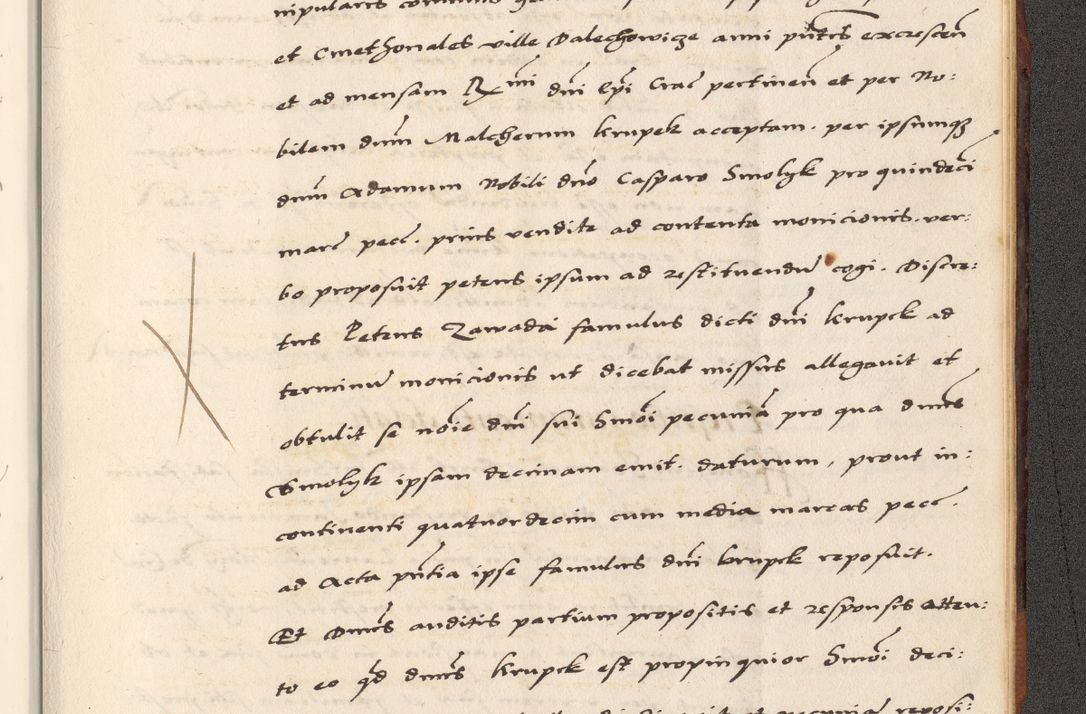 nipulares
et Cmethonales ville Dalechowicze anni pñtis excrescen
et ad mensam Rmi dni Epi Crac pertinen et per No:
bilem dnm Malcherum Krupek acceptam. per ipsumqz
dnm Adamum Nobili dno Casparo Smolyk pro quindeci
marc pecc. prius vendite ad contenta monicionis. ver:
bo proposuit petens ipsum ad restituendu cogi. Discre:
tus Petrus Zawada famulus dicti dni Krupek ad
terminu monicionis ut dicebat missus allegavit et
obtulit se noie dni sui Smoi pecunia pro qua dnus
Smolyk ipsam decimam emit. daturum, prout in:
continenti quatuordecim cum media marcas pecc.
ad Acta pñtia ipse famulus dni Krupek reposuit.
Et Dnus auditis partium propositis et responsis atten:
to eo qd dnus Krupek est propinquior Smoi deci:
reposi: